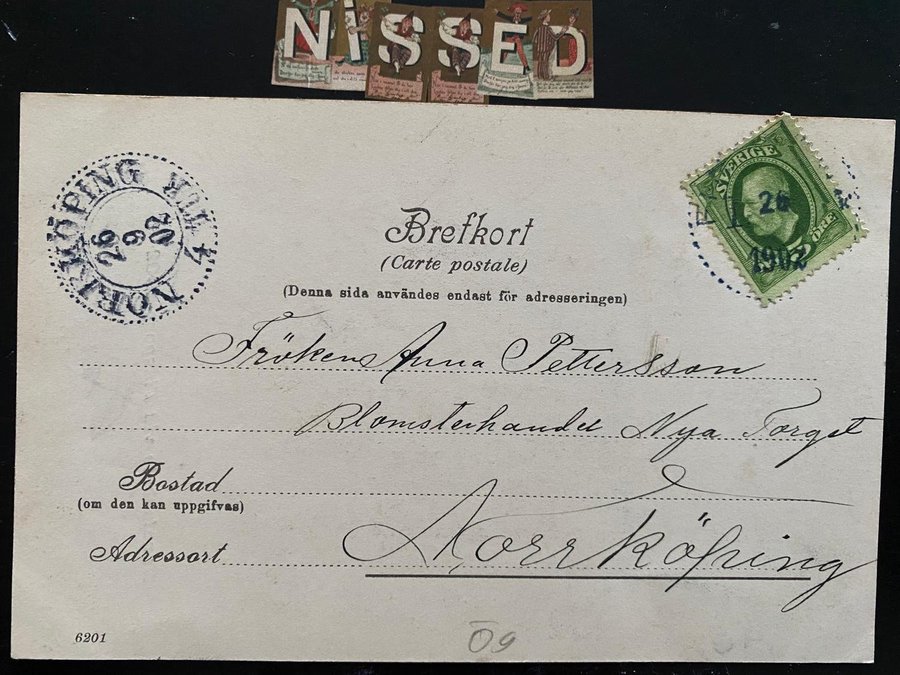 NISSED
NORRKÖPING TUR 4
26
9
02
SVERIGE
ÖRE
26
1902
Brefkort
(Carte postale)
(Denna sida användes endast för adresseringen)
Fröken Anna Pettersson
Blomsterhandel Nya Torget
Bostad
(om den kan uppgifvas)
Adressort
Norrköping
6201
09